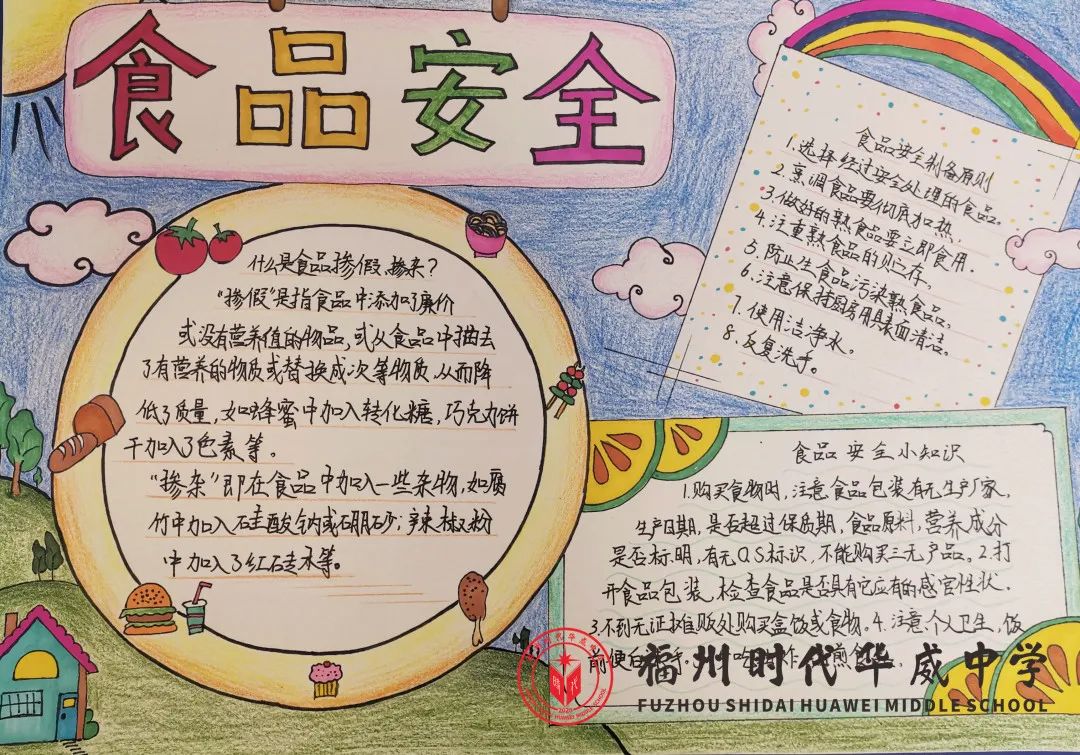 食品安全
什么是食品掺假、掺杂？
“掺假”是指食品中添加了廉价
或没有营养值的物品，或从食品中抽去
了有营养的物质或替换成次等物质，从而降
低了质量，如蜂蜜中加入转化糖，巧克力饼
干加入了色素等。
“掺杂”即在食品中加入一些杂物，如腐
竹中加入硅酸钠或硼砂；辣椒粉
中加入了红砖末等。
食品安全制备原则
1.选择经过安全处理的食品。
2.烹调食品要彻底加热。
3.做好的熟食品要立即食用。
4.注重熟食品的贮存。
5.防止生食品污染熟食品。
6.注意保持厨房用具表面清洁。
7.使用洁净水。
8.反复洗手。
食品安全小知识
1.购买食物时，注意食品包装有无生产厂家，
生产日期，是否超过保质期，食品原料，营养成分
是否标明，有无QS标识，不能购买三无产品。2.打
开食品包装，检查食品是否具有它应有的感官性状。
3.不到无证摊贩处购买盒饭或食物。4.注意个人卫生，饭
前便
福州时代华威中学
FUZHOU SHIDAI HUAWEI MIDDLE SCHOOL